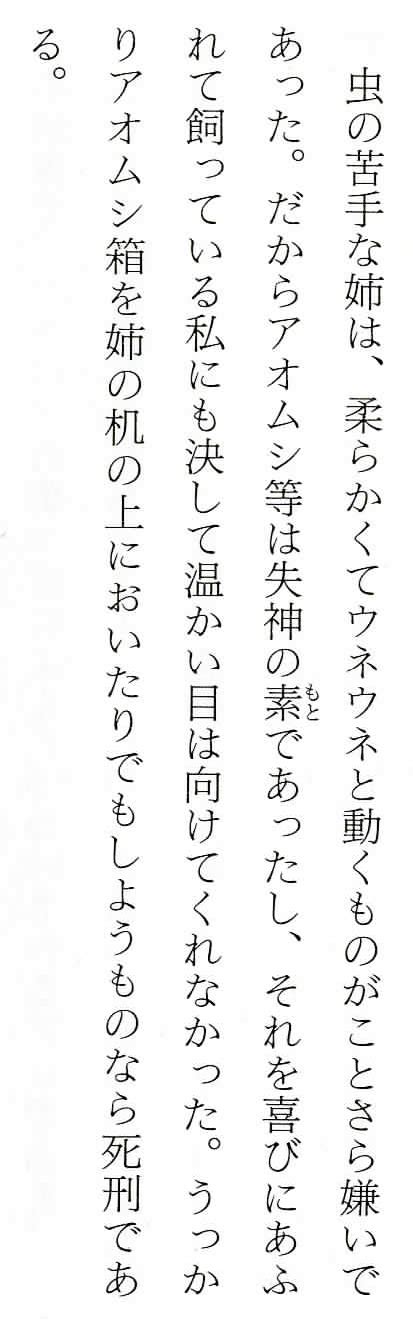 虫の苦手な姉は、柔らかくてウネウネと動くものがことさら嫌いで
あった。だからアオムシ等は失神の素であったし、それを喜びにあふ
れて飼っている私にも決して温かい目は向けてくれなかった。うっか
りアオムシ箱を姉の机の上においたりでもしようものなら死刑であ
る。
もと